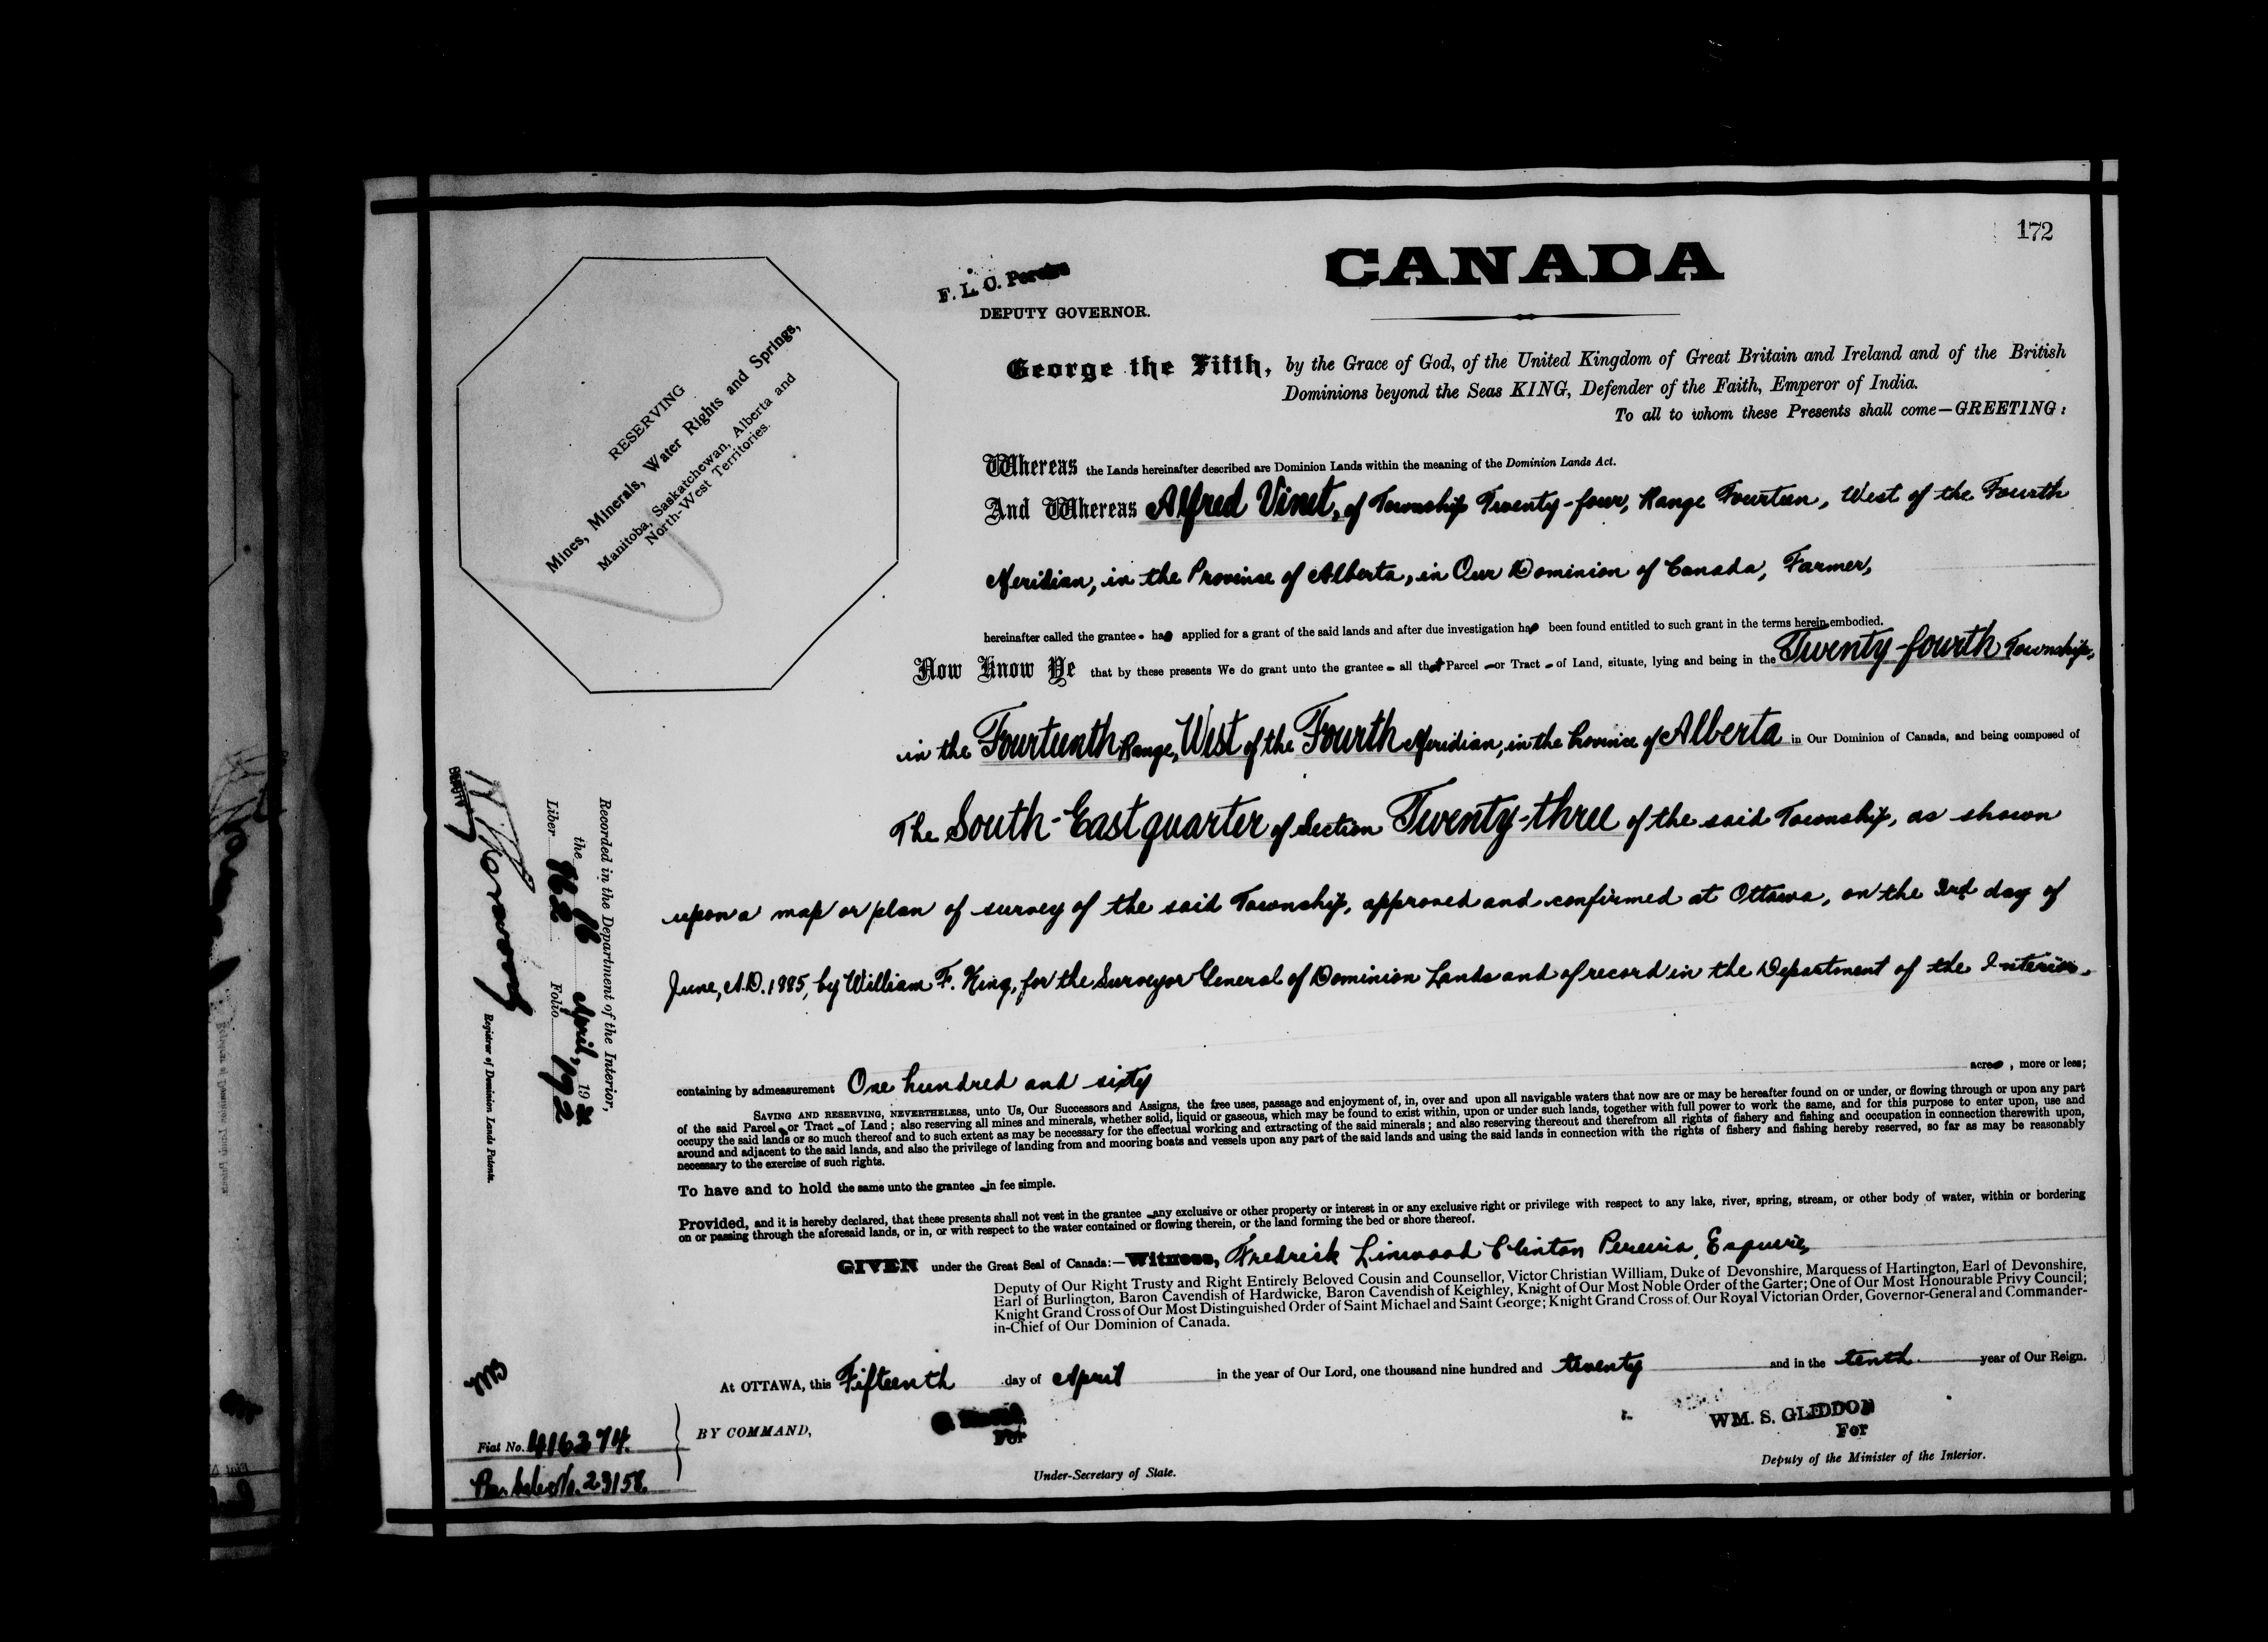 172
CANADA
F. L. C. Pereira
DEPUTY GOVERNOR.
George the Fifth, by the Grace of God, of the United Kingdom of Great Britain and Ireland and of the British
Dominions beyond the Seas KING, Defender of the Faith, Emperor of India.
To all to whom these Presents shall come—GREETING:
RESERVING
Mines, Minerals, Water Rights and Springs,
Manitoba, Saskatchewan, Alberta and
North-West Territories.
Whereas the Lands hereinafter described are Dominion Lands within the meaning of the Dominion Lands Act.
And Whereas Alfred Vinet, of Township Twenty-four, Range Fourteen, West of the Fourth
Meridian, in the Province of Alberta, in Our Dominion of Canada, Farmer,
hereinafter called the grantee has applied for a grant of the said lands and after due investigation has been found entitled to such grant in the terms herein embodied.
Now Know Ye that by these presents We do grant unto the grantee all that Parcel or Tract of Land, situate, lying and being in the Twenty-fourth Township,
in the Fourteenth Range, West of the Fourth Meridian, in the Province of Alberta in Our Dominion of Canada, and being composed of
The South-East quarter of Section Twenty-three of the said Township, as shown
upon a map or plan of survey of the said Township, approved and confirmed at Ottawa, on the 3rd day of
June, A.D. 1885, by William F. King, for the Surveyor General of Dominion Lands and of record in the Department of the Interior.
containing by admeasurement One hundred and sixty acres, more or less;
SAVING AND RESERVING, NEVERTHELESS, unto Us, Our Successors and Assigns, the free uses, passage and enjoyment of, in, over and upon all navigable waters that now are or may be hereafter found on or under, or flowing through or upon any part
of the said Parcel or Tract of Land; also reserving all mines and minerals, whether solid, liquid or gaseous, which may be found to exist within, upon or under such lands, together with full power to work the same, and for this purpose to enter upon, use and
occupy the said lands or so much thereof and to such extent as may be necessary for the effectual working and extracting of the said minerals; and also reserving thereout and therefrom all rights of fishery and fishing and occupation in connection therewith upon,
around and adjacent to the said lands, and also the privilege of landing from and mooring boats and vessels upon any part of the said lands and using the said lands in connection with the rights of fishery and fishing hereby reserved, so far as may be reasonably
necessary to the exercise of such rights.
To have and to hold the same unto the grantee in fee simple.
Provided, and it is hereby declared, that these presents shall not vest in the grantee any exclusive or other property or interest in or any exclusive right or privilege with respect to any lake, river, spring, stream, or other body of water, within or bordering
on or passing through the aforesaid lands, or in, or with respect to the water contained or flowing therein, or the land forming the bed or shore thereof.
GIVEN under the Great Seal of Canada:—Witness, Fredrick Linwood Clinton Pereira, Esquire,
Deputy of Our Right Trusty and Right Entirely Beloved Cousin and Counsellor, Victor Christian William, Duke of Devonshire, Marquess of Hartington, Earl of Devonshire,
Earl of Burlington, Baron Cavendish of Hardwicke, Baron Cavendish of Keighley, Knight of Our Most Noble Order of the Garter; One of Our Most Honourable Privy Council;
Knight Grand Cross of Our Most Distinguished Order of Saint Michael and Saint George; Knight Grand Cross of Our Royal Victorian Order, Governor-General and Commander-
in-Chief of Our Dominion of Canada.
At OTTAWA, this Fifteenth day of April in the year of Our Lord, one thousand nine hundred and twenty and in the tenth year of Our Reign.
BY COMMAND,
For
Under-Secretary of State.
WM. S. GLIDDON
For
Deputy of the Minister of the Interior.
Recorded in the Department of the Interior,
the 16 April, 1920
Liber 862 Folio 172
DEPUTY
Registrar of Dominion Lands Patents.
Fiat No. 416274.
No. 23158.